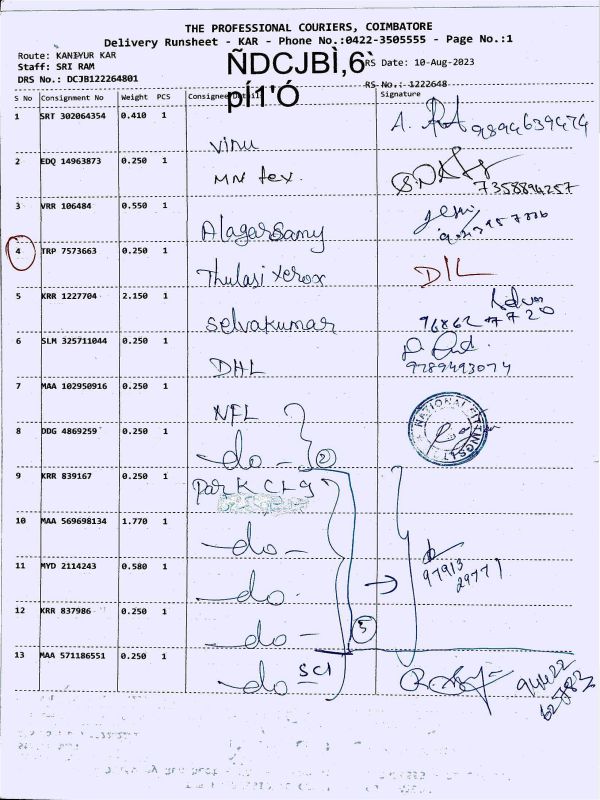 THE PROFESSIONAL COURIERS, COIMBATORE
Delivery Runsheet - KAR - Phone No.:0422-3505555 - Page No.:1
Route: KANIYUR KAR
Staff: SRI RAM
DRS No.: DCJB122264801
ÑDCJBÌ,6`
pÍ1'Ó
RS Date: 10-Aug-2023
RS No.: 1222648
S No Consignment No Weight PCS Consignee Details Signature
1 SRT 302064354 0.410 1 Vinu A. 9894639474
2 EDQ 14963873 0.250 1 MN tex. 7358894257
3 VRR 106484 0.550 1 Alagarsamy
4 TRP 7573663 0.250 1 Thulasi xerox D/L
5 KRR 1227704 2.150 1 Selvakumar 96862 77720
6 SLM 325711044 0.250 1 DHL 9789493074
7 MAA 102950916 0.250 1 NFL NATIONAL FITTINGS
8 DDG 4869259 0.250 1 do - 2
9 KRR 839167 0.250 1 Park Clg
10 MAA 569698134 1.770 1 do -
11 MYD 2114243 0.580 1 do. 97913 29771
12 KRR 837986 0.250 1 do - 5
13 MAA 571186551 0.250 1 do SCI 94422 62783